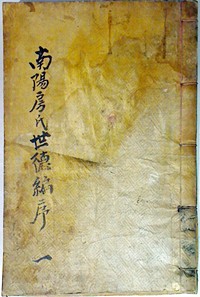 南陽房氏世德編序 一